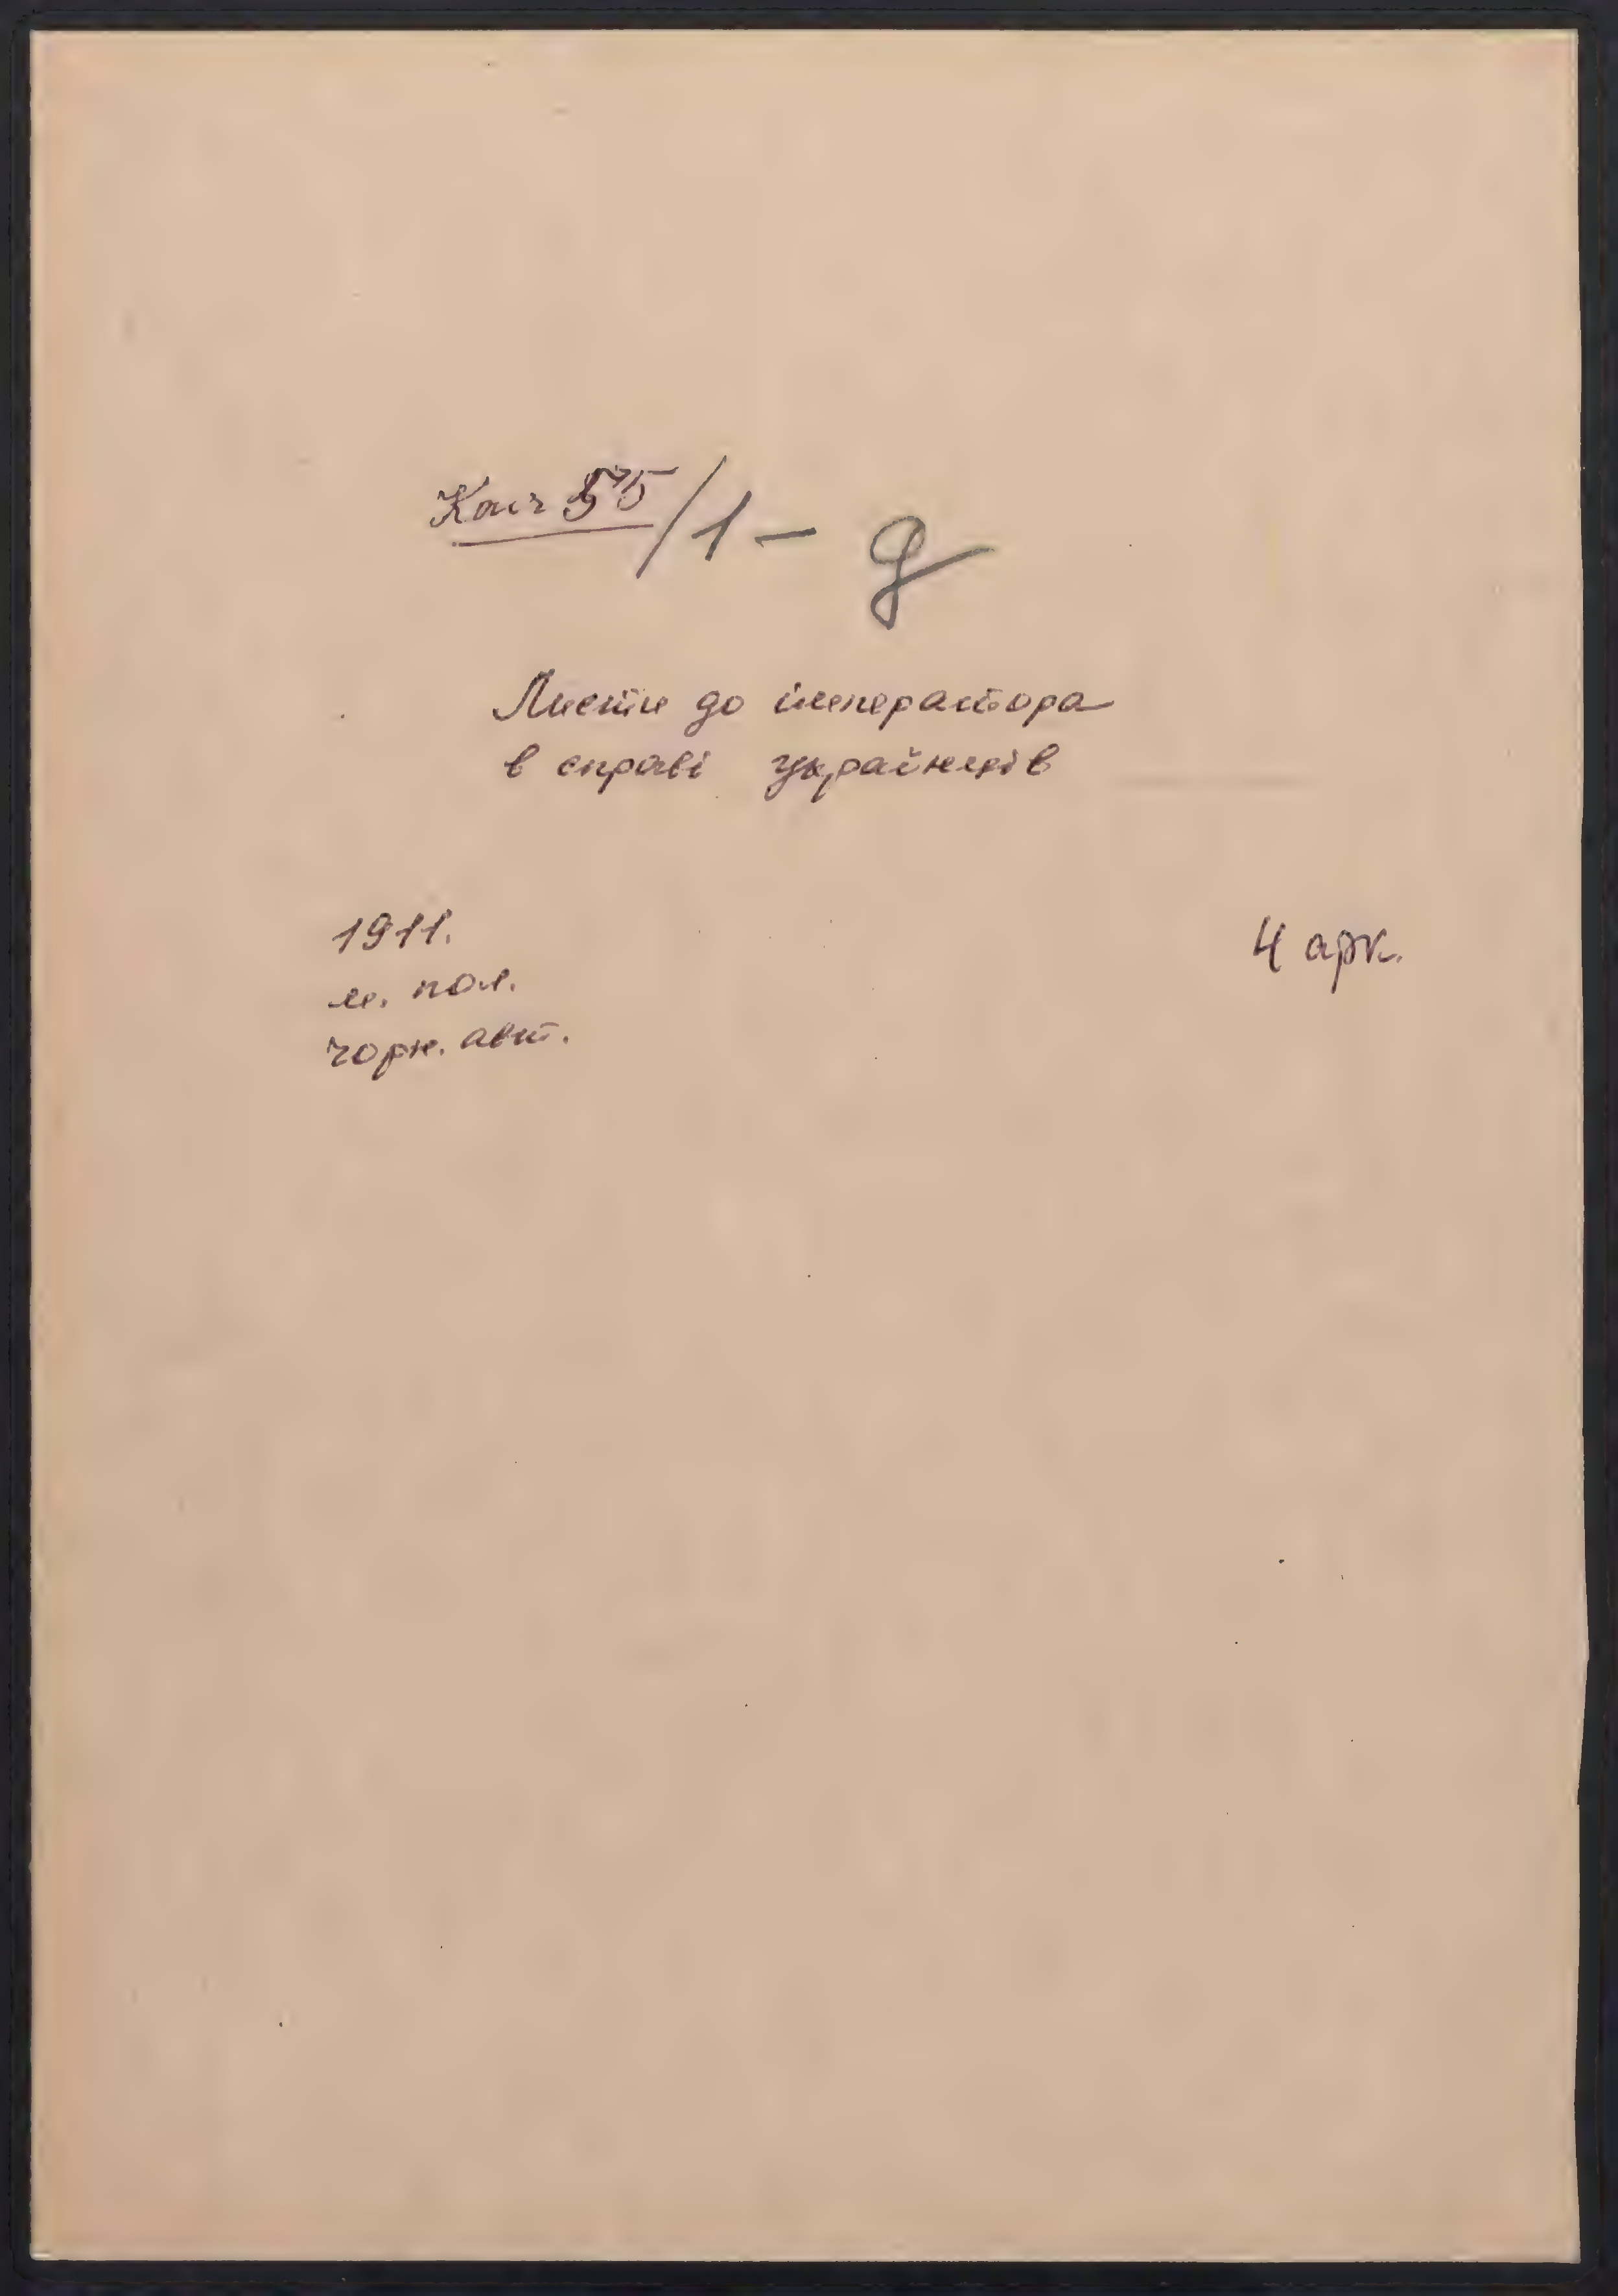 Кос 55/1 - д
Листи до імператора
в справі українців
1911.
м. пол.
чорн. авт.
4 арк.